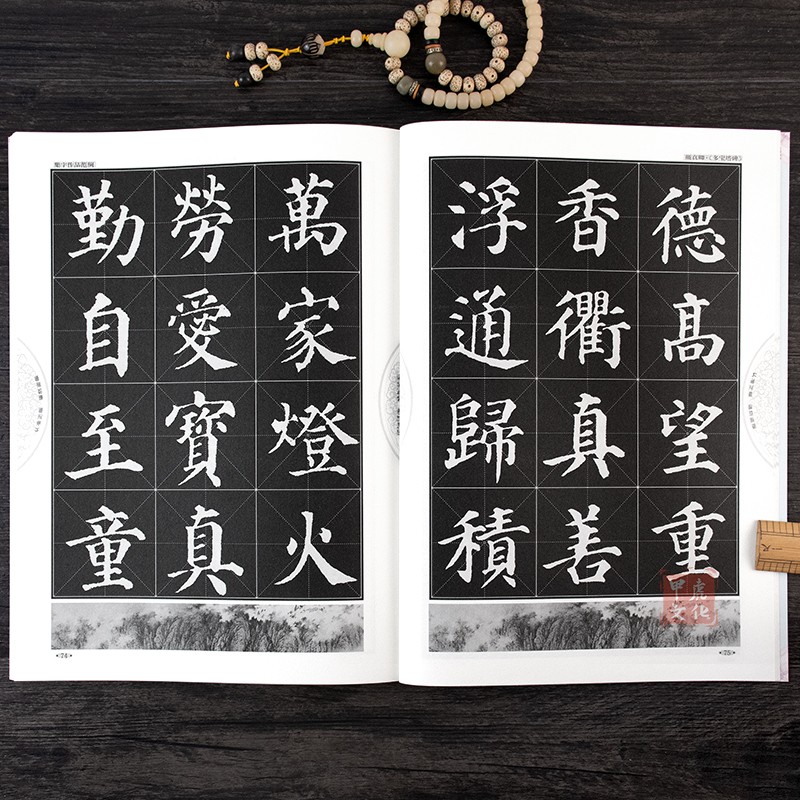 集字作品范例
萬家燈火
勞愛寶真
勤自至童
74
颜真卿《多宝塔碑》
德高望重
香衢真善
浮通歸積
75